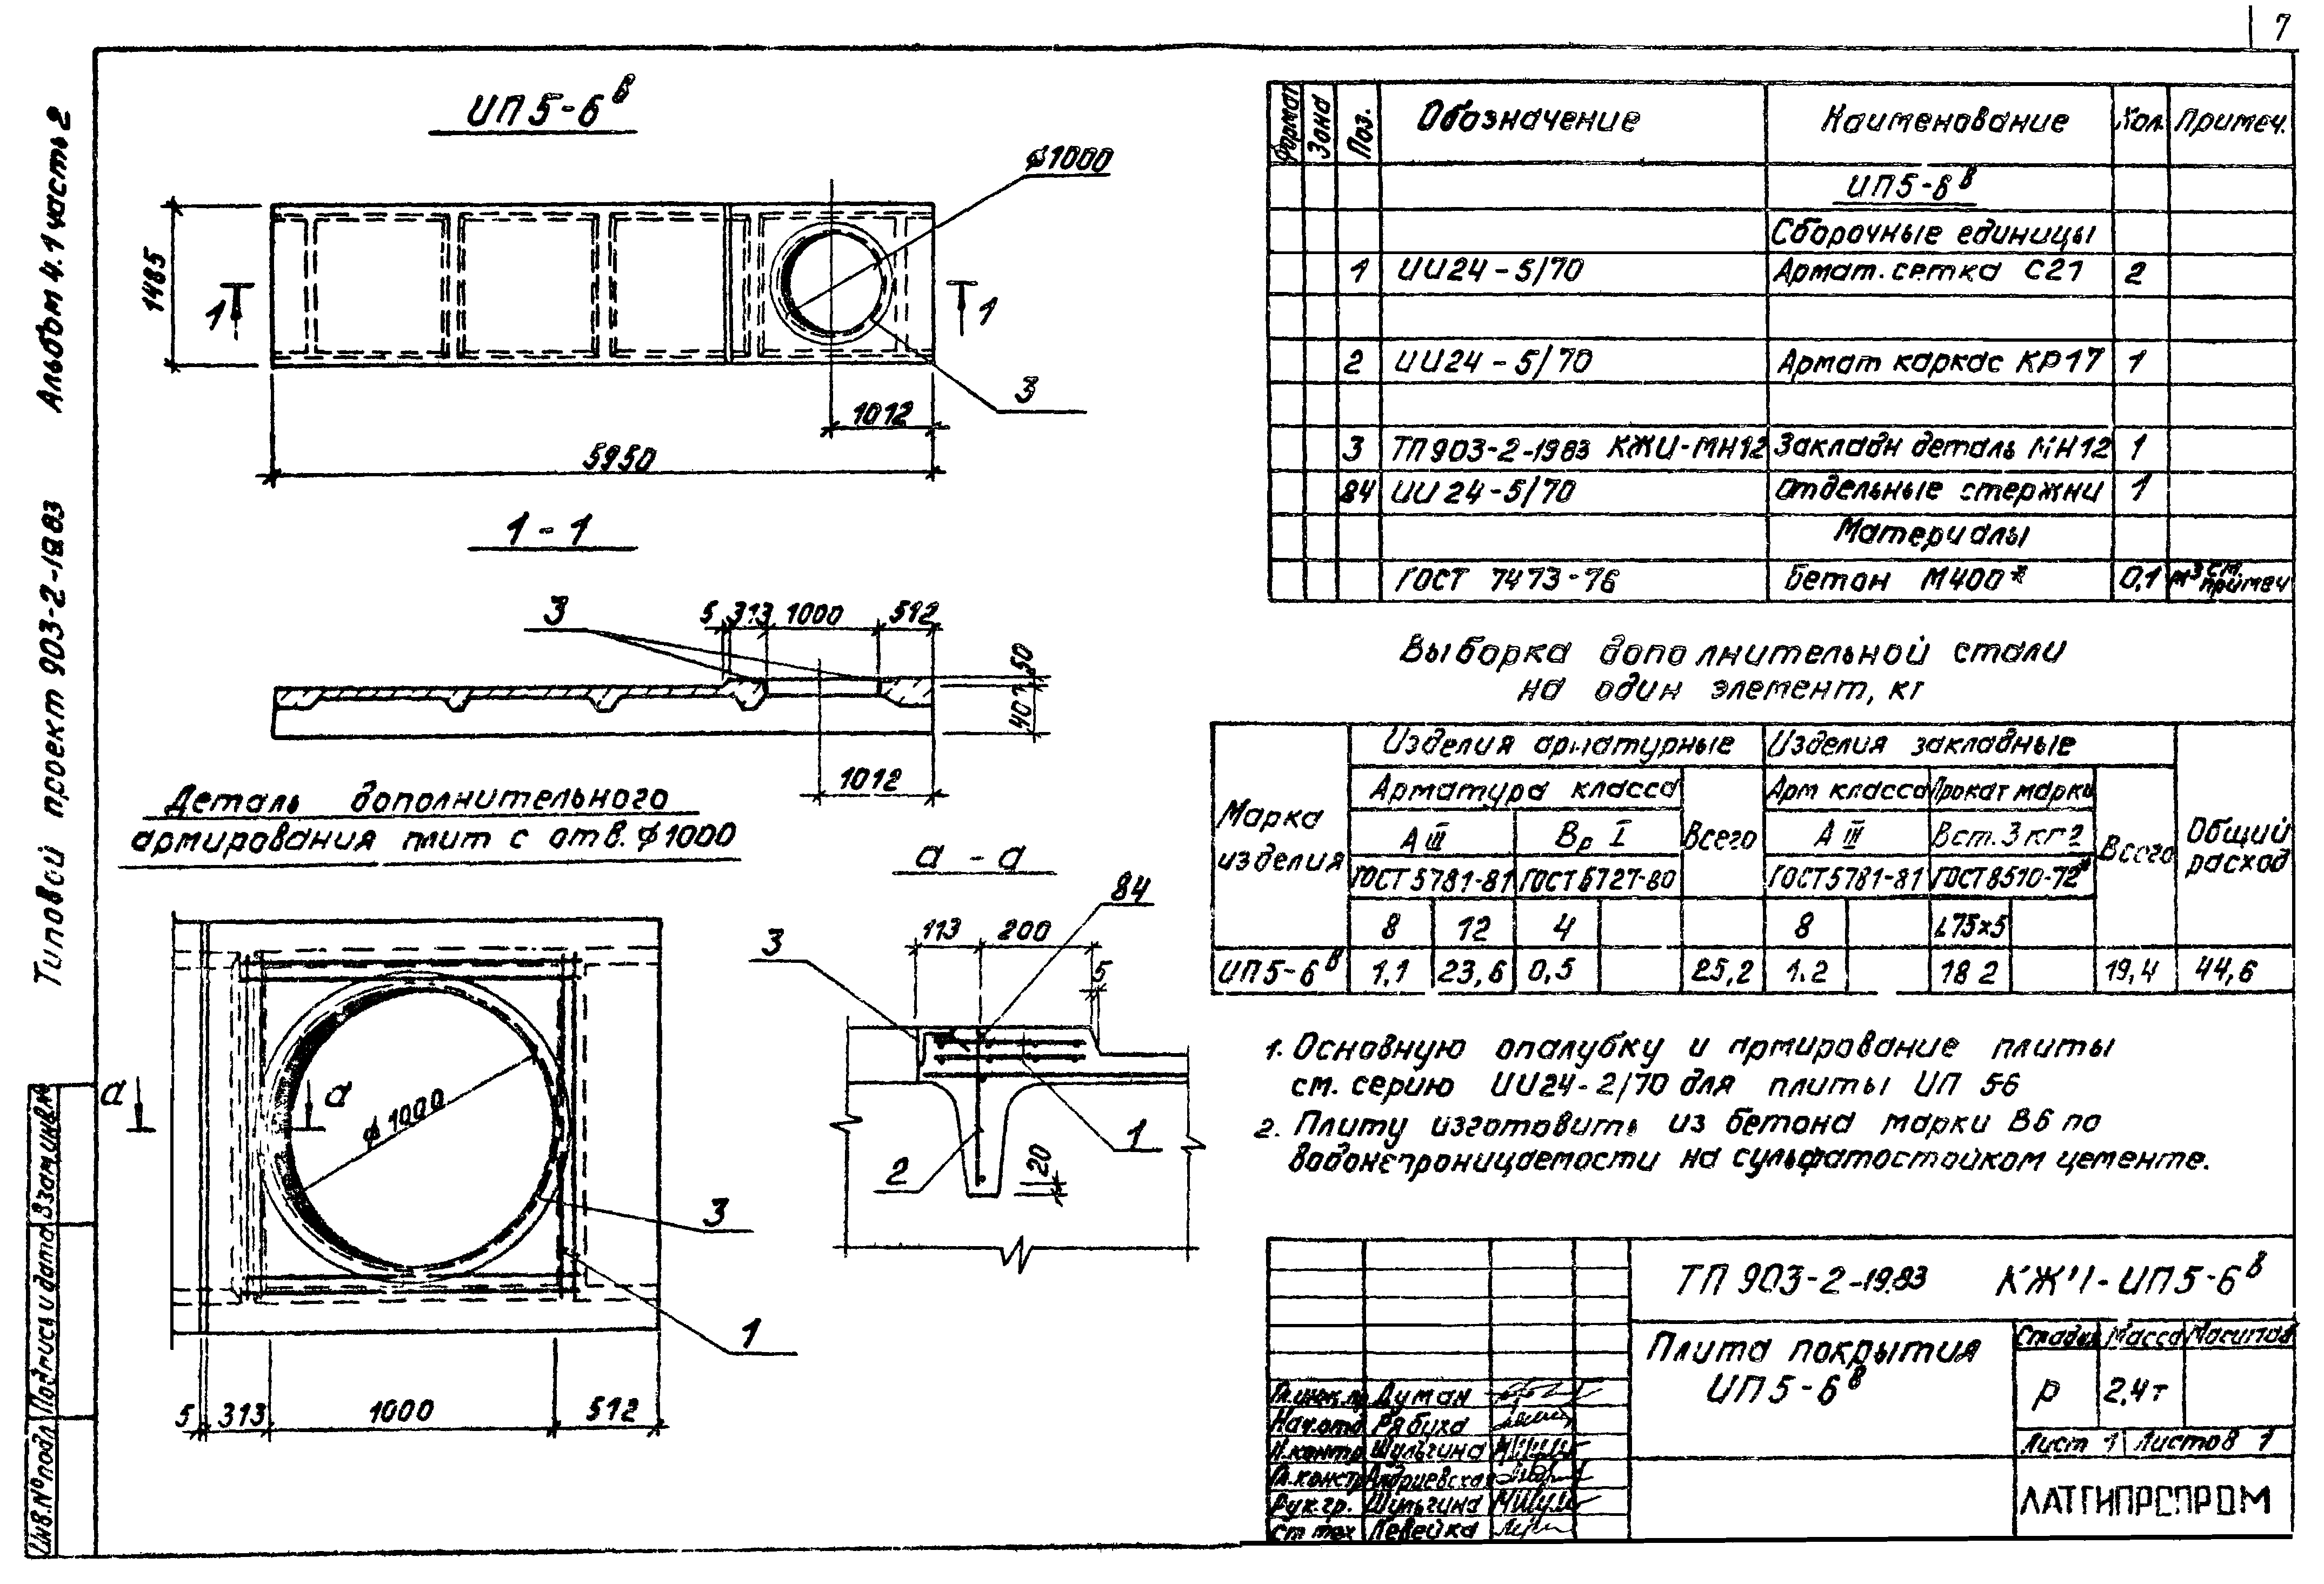 7
Альбом 4.1 часть 2
Типовой проект 903-2-1983
Инв.№подл.
Подпись и дата
Взам инв.№
ИП5-6в
ф1000
1485
1
1
3
1012
5950
1-1
3
5
313
1000
512
50
407
1012
Деталь дополнительного
армирования плит с отв. ф1000
а
а
ф1000
3
1
5
313
1000
512
а-а
84
3
113
200
5
20
2
1
Формат Зона Поз. Обозначение Наименование Кол. Примеч.
ИП5-6в
Сборочные единицы
1 ИИ24-5/70 Армат. сетка С21 2
2 ИИ24-5/70 Армат каркас КР17 1
3 ТП903-2-1983 КЖИ-МН12 Закладн деталь МН12 1
84 ИИ24-5/70 Отдельные стержни 1
Материалы
ГОСТ 7473-76 Бетон М400* 0,1 м³ см. примеч
Выборка дополнительной стали
на один элемент, кг
Марка изделия
Изделия арматурные Изделия закладные
Общий расход
Арматура класса Всего Арм класса Прокат марки Всего
А III Вр I А III Вст. 3 кг 2
ГОСТ 5781-81 ГОСТ 6727-80 ГОСТ 5781-81 ГОСТ 8510-72*
8 12 4 8 L75х5
ИП5-6в 1,1 23,6 0,5 25,2 1.2 18 2 19,4 44,6
1. Основную опалубку и армирование плиты
см. серию ИИ24-2/70 для плиты ИП 5-6
2. Плиту изготовить из бетона марки В6 по
водонепроницаемости на сульфатостойком цементе.
ТП 903-2-1983 КЖИ-ИП5-6в
Плита покрытия
ИП5-6в
Стадия Масса Масштаб
Р 2,4т
Лист 1 Листов 1
ЛАТГИПРОПРОМ
Гл.инж.пр. Думан
Нач.отд Рябуха
Н.контр Шульгина
Гл.констр Андриевская
Рук.гр. Шульгина
Ст тех Левейка